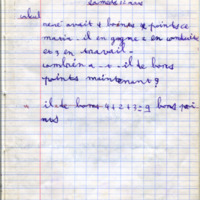 calcul
rené avait 4 boins de points ce
matin. il en gagne 2 en conduite
et 3 en travail.
combien a-t-il de bons
points maintenant?
il de bons 4+2+3=9 bons poi
nts